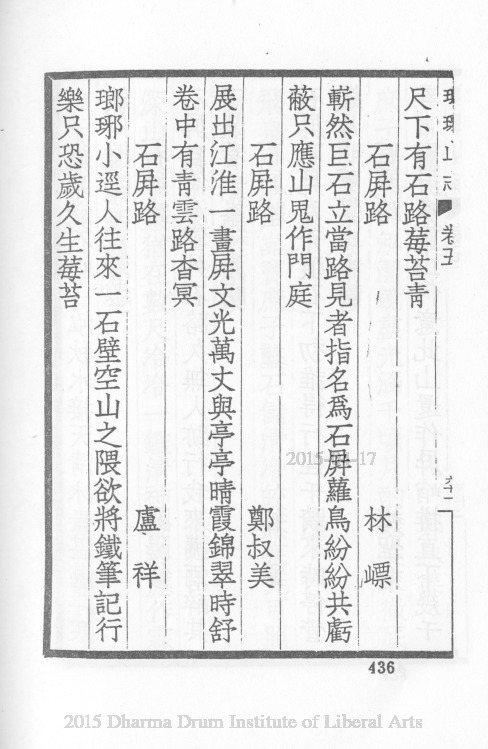 瑯琊山志 卷五
尺下有石路莓苔青
石屛路 林嶾
嶄然巨石立當路見者指名爲石屛蘿鳥紛紛共虧
蔽只應山鬼作門庭
石屛路 鄭叔美
展出江淮一畫屛文光萬丈與亭亭晴霞錦翠時舒
卷中有靑雲路杳冥
石屛路 盧祥
瑯琊小逕人往來一石壁空山之隈欲將鐵筆記行
樂只恐歲久生莓苔
436
2015-04-17
2015 Dharma Drum Institute of Liberal Arts